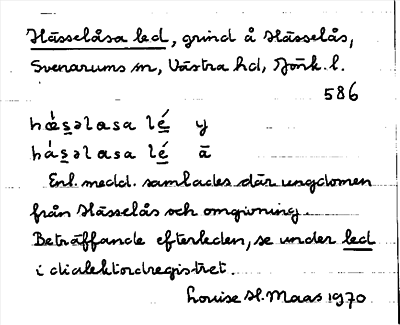 Hässelåsa led, grind å Hässelås,
Svenarums sn, Västra hd, Jönk. l.
586
hæ̀s̱əlasa lé̱ y
hàs̱əlasa lé̱ ā
Enl. medd. samlades där ungdomen
från Hässelås och omgivning.
Beträffande efterleden, se under led
i dialektordregistret.
Louise H. Maas 1970